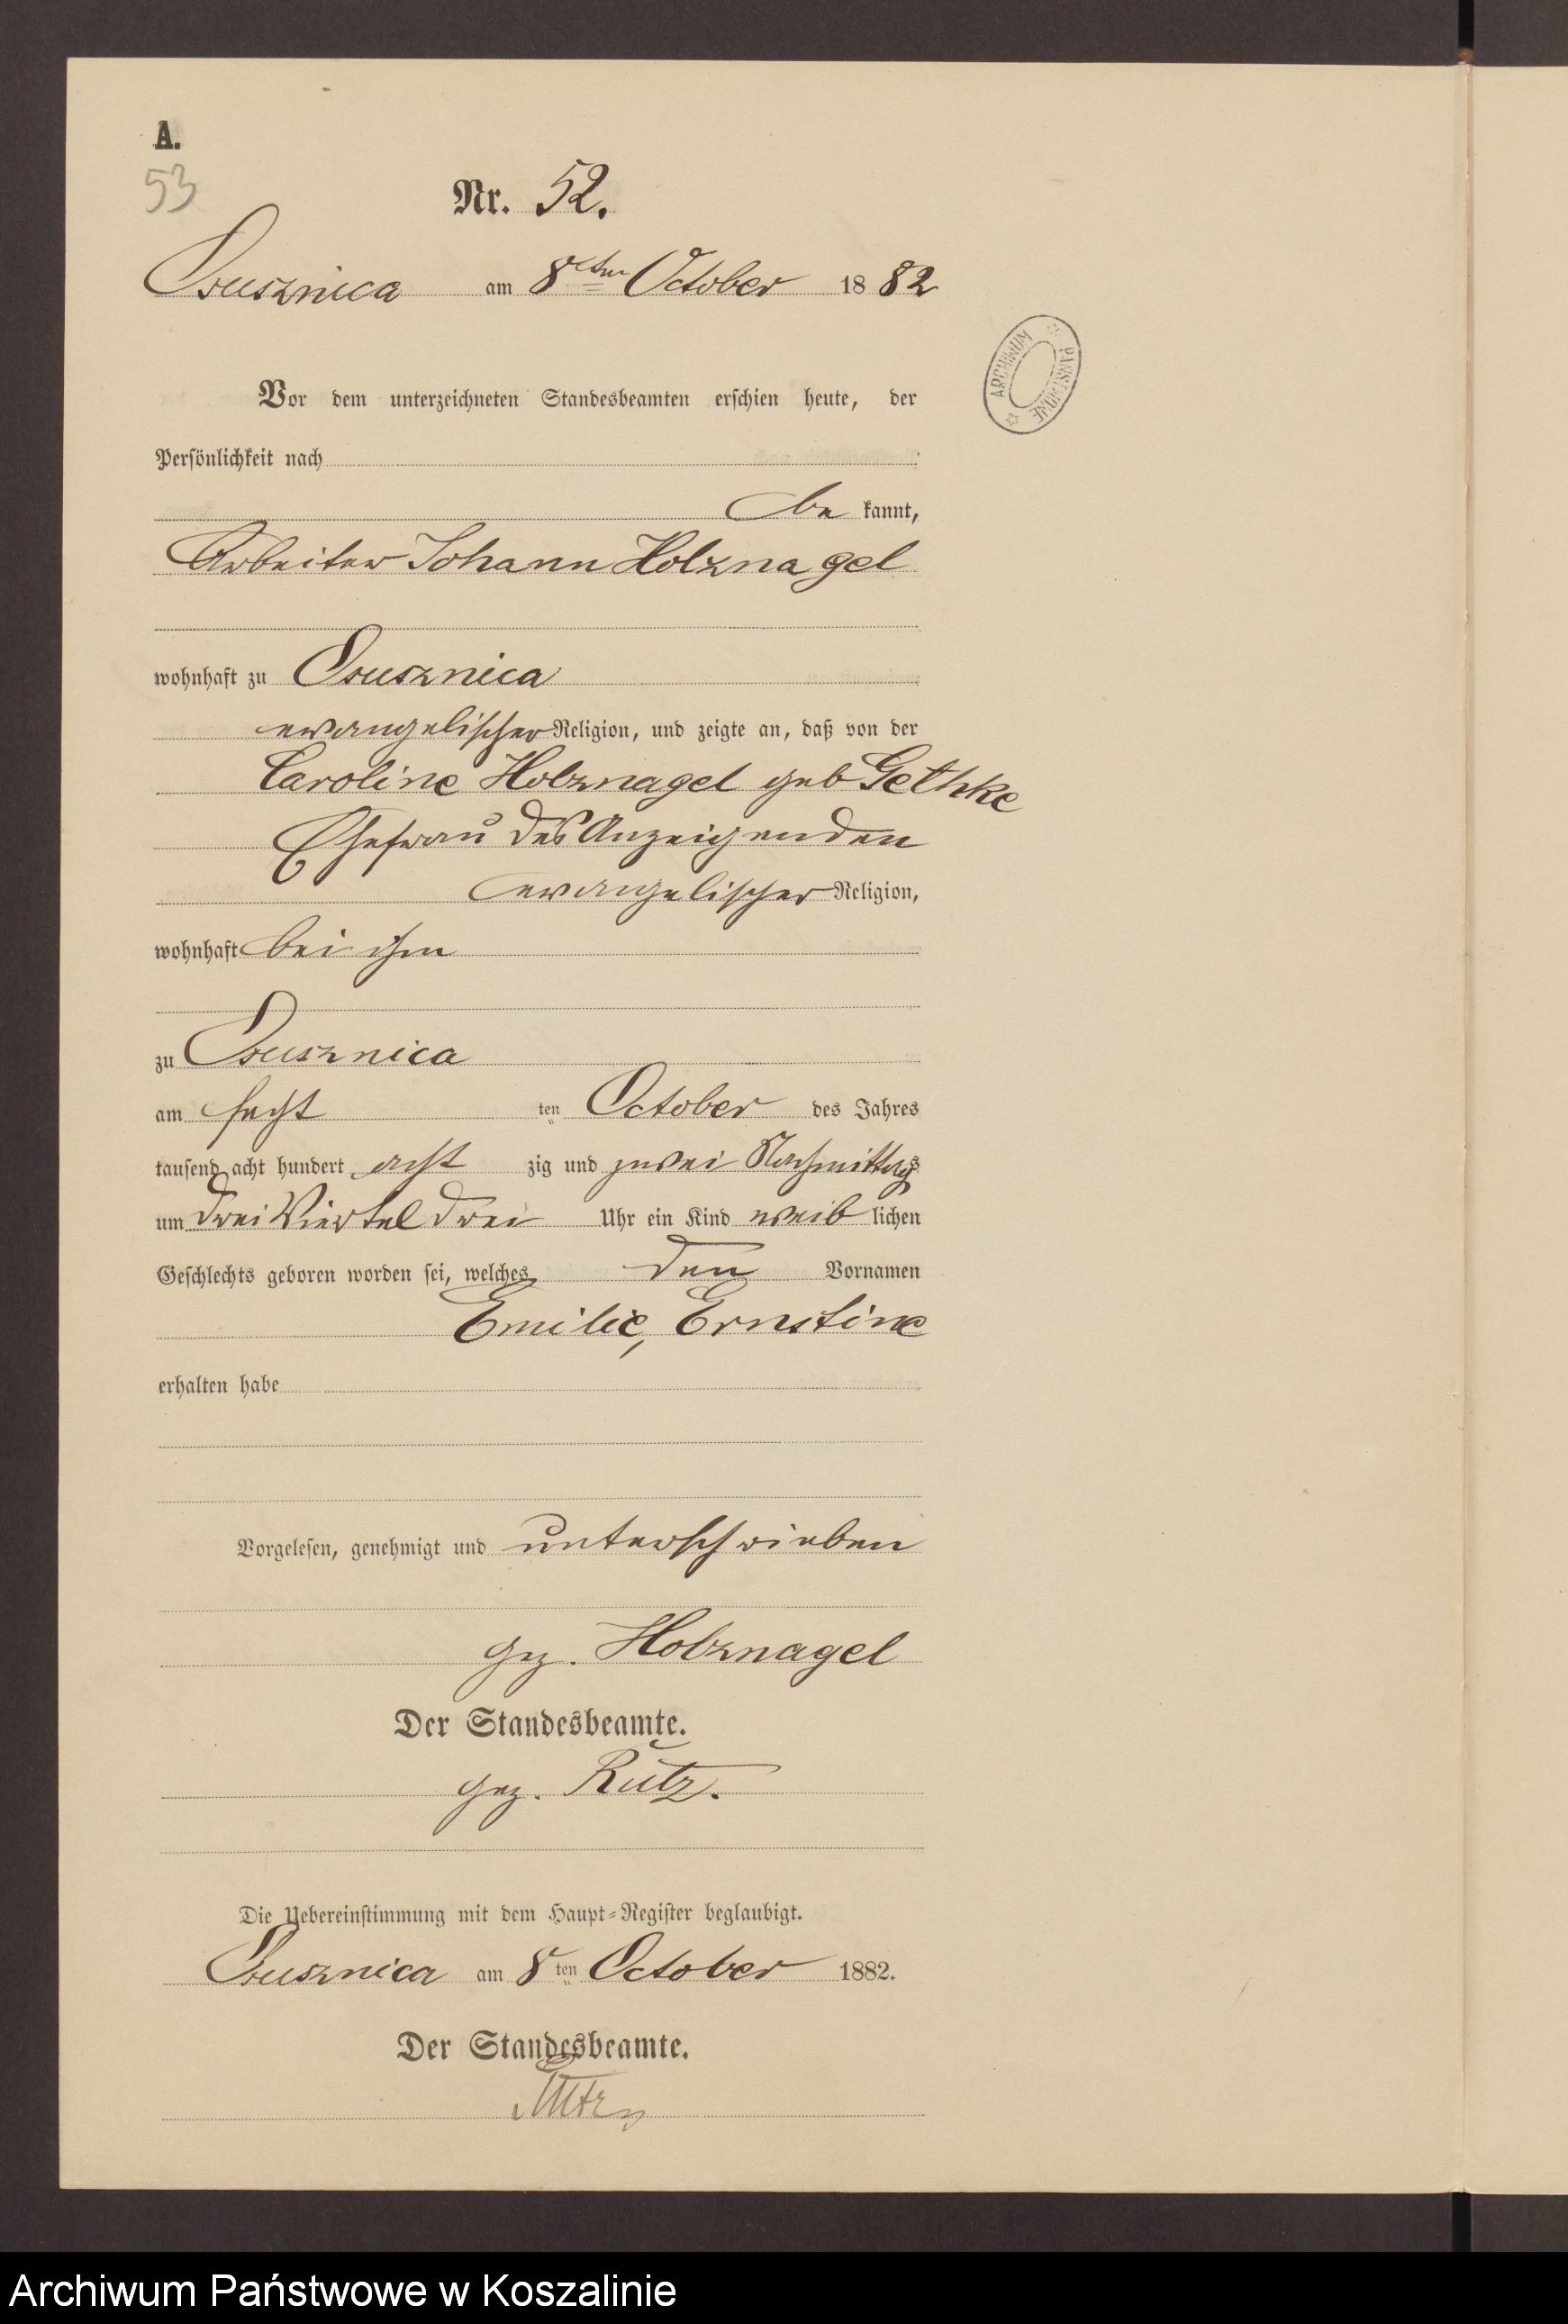 A.
53
Nr. 52.
Osusznica am 8ten October 1882
ARCHIWUM PAŃSTWOWE
Vor dem unterzeichneten Standesbeamten erschien heute, der
Persönlichkeit nach
be kannt,
Arbeiter Johann Holznagel
wohnhaft zu Osusznica
evangelischer Religion, und zeigte an, daß von der
Caroline Holznagel geb Gethke
Ehefrau des Anzeigenden
evangelischer Religion,
wohnhaft bei ihm
zu Osusznica
am sechsten October des Jahres
tausend acht hundert acht zig und zwei Nachmittags
um drei Viertel drei Uhr ein Kind weib lichen
Geschlechts geboren worden sei, welches den Vornamen
Emilie, Ernstine
erhalten habe
Vorgelesen, genehmigt und unterschrieben
gez. Holznagel
Der Standesbeamte.
gez. Rutz.
Die Uebereinstimmung mit dem Haupt-Register beglaubigt.
Osusznica am 8ten October 1882.
Der Standesbeamte.
Rutz
Archiwum Państwowe w Koszalinie